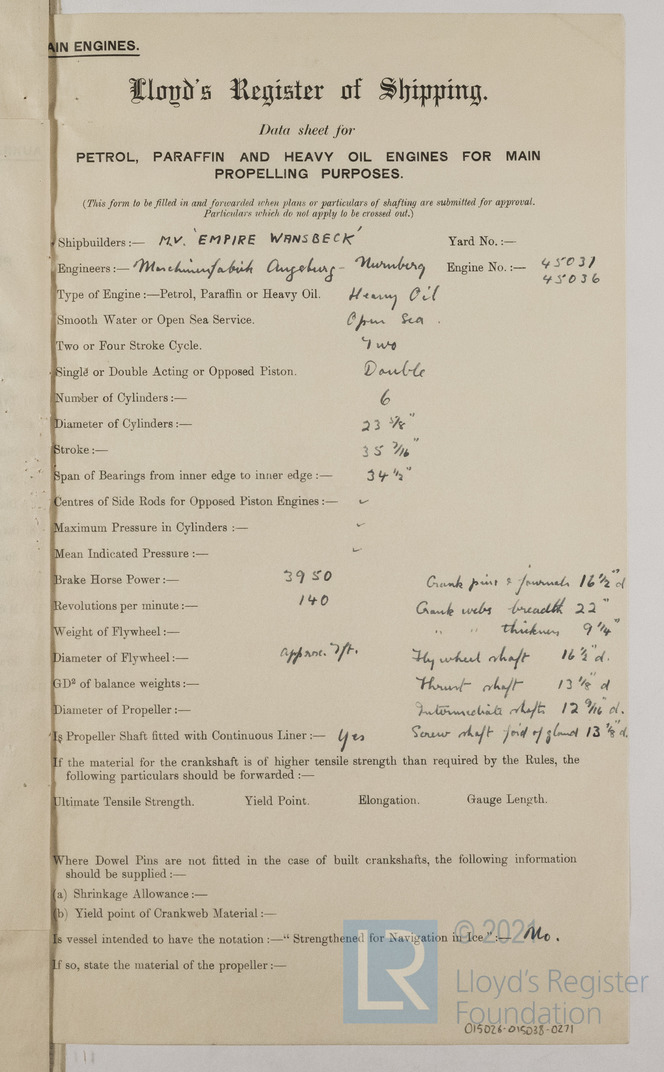 AIN ENGINES.
Lloyd's Register of Shipping.
Data sheet for
PETROL, PARAFFIN AND HEAVY OIL ENGINES FOR MAIN
PROPELLING PURPOSES.
(This form to be filled in and forwarded when plans or particulars of shafting are submitted for approval.
Particulars which do not apply to be crossed out.)
Shipbuilders:— M.V. 'EMPIRE WANSBECK' Yard No.:—
Engineers:— Maschinenfabrik Augsburg- Nurnberg Engine No.:— 45031
45036
Type of Engine:—Petrol, Paraffin or Heavy Oil. Heavy Oil
Smooth Water or Open Sea Service. Open Sea.
Two or Four Stroke Cycle. Two
Single or Double Acting or Opposed Piston. Double
Number of Cylinders:— 6
Diameter of Cylinders:— 23 5/8"
Stroke:— 35 7/16"
Span of Bearings from inner edge to inner edge:— 34 1/2"
Centres of Side Rods for Opposed Piston Engines:— ✓
Maximum Pressure in Cylinders:— ✓
Mean Indicated Pressure:— ✓
Brake Horse Power:— 3950 Crank pins & journals 16 1/2" d
Revolutions per minute:— 140 Crank webs breadth 22"
Weight of Flywheel:— " " thickness 9 1/4"
Diameter of Flywheel:— approx. 7ft. Flywheel shaft 16 1/2" d.
GD² of balance weights:— Thrust shaft 13 1/8" d
Diameter of Propeller:— Intermediate shafts 12 9/16" d.
Is Propeller Shaft fitted with Continuous Liner:— Yes Screw shaft for'd of gland 13 7/8" d.
If the material for the crankshaft is of higher tensile strength than required by the Rules, the
following particulars should be forwarded:—
Ultimate Tensile Strength. Yield Point. Elongation. Gauge Length.
Where Dowel Pins are not fitted in the case of built crankshafts, the following information
should be supplied:—
(a) Shrinkage Allowance:—
(b) Yield point of Crankweb Material:—
Is vessel intended to have the notation:—"Strengthened for Navigation in Ice":— No.
If so, state the material of the propeller:—
© 2021
LR
Lloyd's Register
Foundation
015026-015038-0271